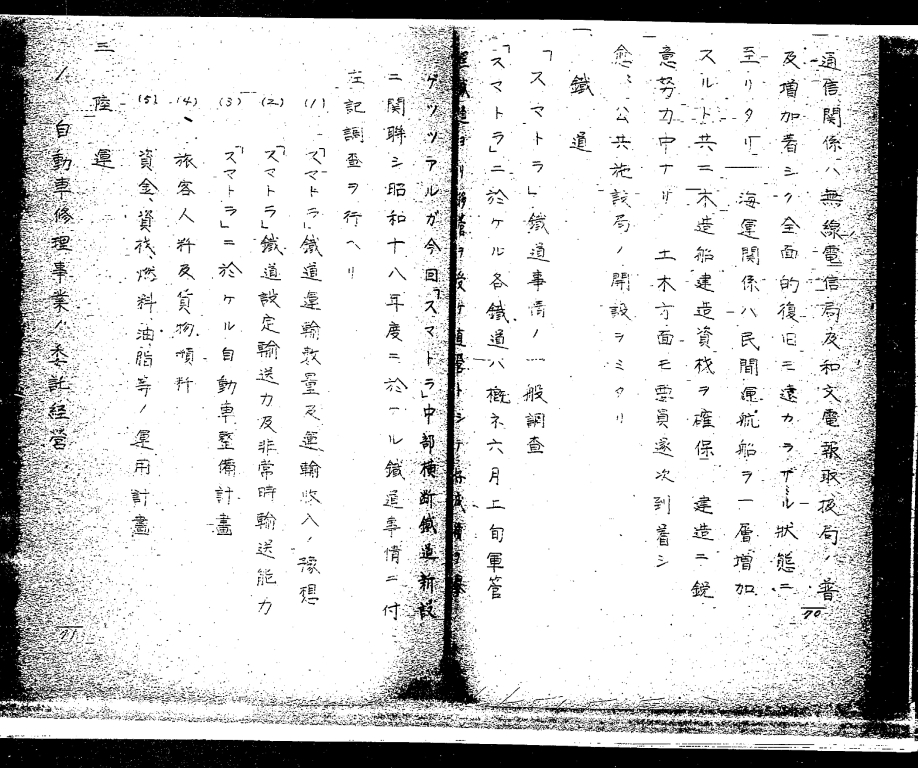 通信関係ハ無線電信局及和文電報取扱局ノ普
及増加著シク全面的復旧モ遠カラザル状態ニ
至リタリ 海運関係ハ民間運航船ヲ一層増加
スルト共ニ木造船建造資材ヲ確保 建造ニ鋭
意努力中ナリ 土木方面モ要員逐次到着シ
愈々公共施設局ノ開設ヲミタリ
一 鐵道
「スマトラ」鐵道事情ノ一般調査
「スマトラ」ニ於ケル各鐵道ハ概ネ六月上旬軍管
理鐵道ヨリ移管ヲ受ケ直営トシテ
ゲツツアルガ今回「スマトラ」中部横断鐵道新設
ニ関聯シ昭和十八年度ニ於ケル鐵道事情ニ付
左記調査ヲ行ヘリ
(1) 「スマトラ」鐵道運輸数量及運輸収入ノ豫想
(2) 「スマトラ」鐵道設定輸送力及非常時輸送能力
(3) 「スマトラ」ニ於ケル自動車整備計畫
(4) 旅客人料及貨物噸料
(5) 資金、資材、燃料油脂等ノ運用計畫
三 陸運
1 自動車修理事業ノ委託経営
70
71